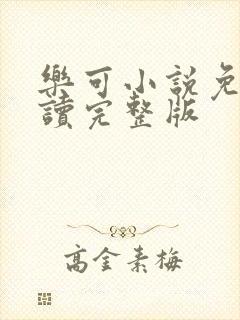 樂可小說免
讀完整版
高金素梅